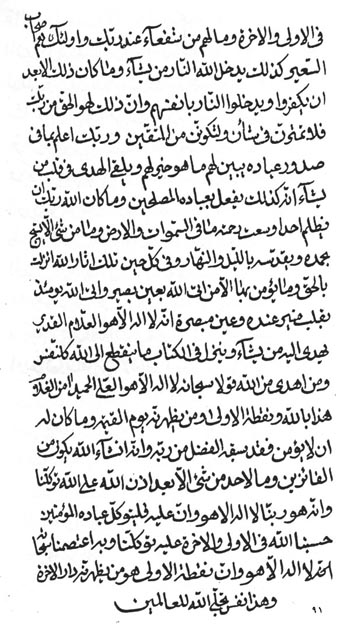 فی الاولی والاخرة وما لهم من شفعآء عند ربّك واولئك هم اصحاب
السعیر كذلك یدخل الله النار من یشآء وما كان ذلك الا بعد
ان یكفروا ویدخلوا النار بانفسهم وانّ ذلك لهو الحق من ربّك
فلا تموتون فی شأن ولتكونن من المتّقین وربّك اعلم بما فی
صدور عباده یبین لهم ما هو خیر لهم ویلقی الهدی فی قلب من
یشآء انّه كذلك یفعل بعباده المصلحین وما كان الله ربّك ان
یظلم احدا وسعت رحمته ما فی السموات والارض وما من شیء الا یسبّح
بحمده ویقدّسه باللیل والنهار وفی كل حین تلك اثار الله نزلت
بالحق وما یؤمن بها الا من اتی الله بعین بصیر والی الله یومئذ
بقلب منیر عنده وعین مبصرة انّه لا اله الا هو العلام القدیر
یهدی الیه من یشآء وینزل فی الكتاب ما ینقطع الی الله كل نفس
ومن اهدی من الله قولا سبحانه لا اله الا هو العلی الحمید امن
هذا بالله ونقطة الاولی ومن یظهر ته یوم القیمة وما كان له
ان لا یؤمن فقد سبقه الفضل من ربّه وانّه ان شآء الله لیكونن من
الفائزین وما لاحد من شیء الا بعد اذن الله علی الله توكّلنا
وانّه هو ربّنا لا اله الا هو وانّ علیه فلیتوكل عباده المؤمنین
حسبنا الله فی الاولی والاخرة علیه توكلنا وبه اعتصمنا
لا اله الا هو وانّ نقطة الاولی هو من یظهر ته دار الاخرة
وهذا نفس تجلّی الله للعالمین
٩١